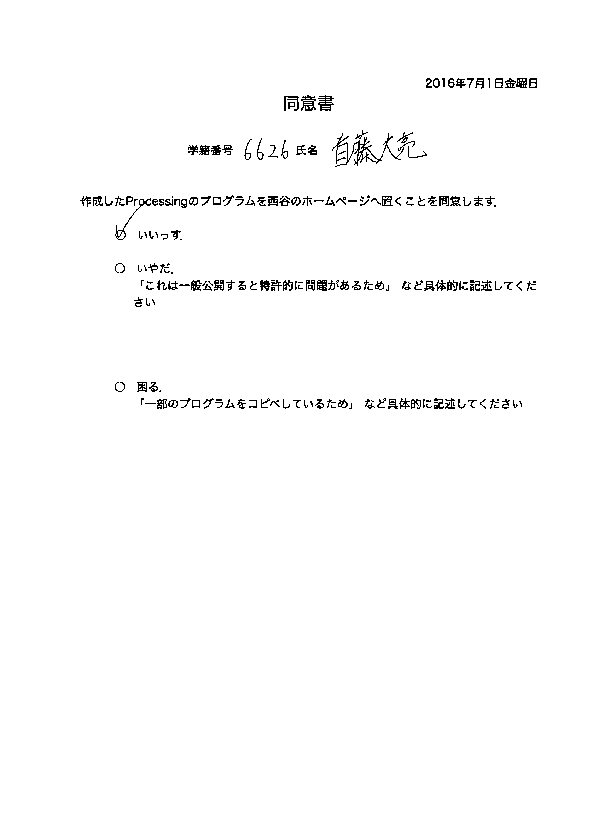 2016年7月1日金曜日
同意書
学籍番号 6626 氏名 首藤大亮
作成したProcessingのプログラムを西谷のホームページへ置くことを同意します.
いいっす.
いやだ.
「これは一般公開すると特許的に問題があるため」 など具体的に記述してくだ
さい
困る.
「一部のプログラムをコピペしているため」 など具体的に記述してください